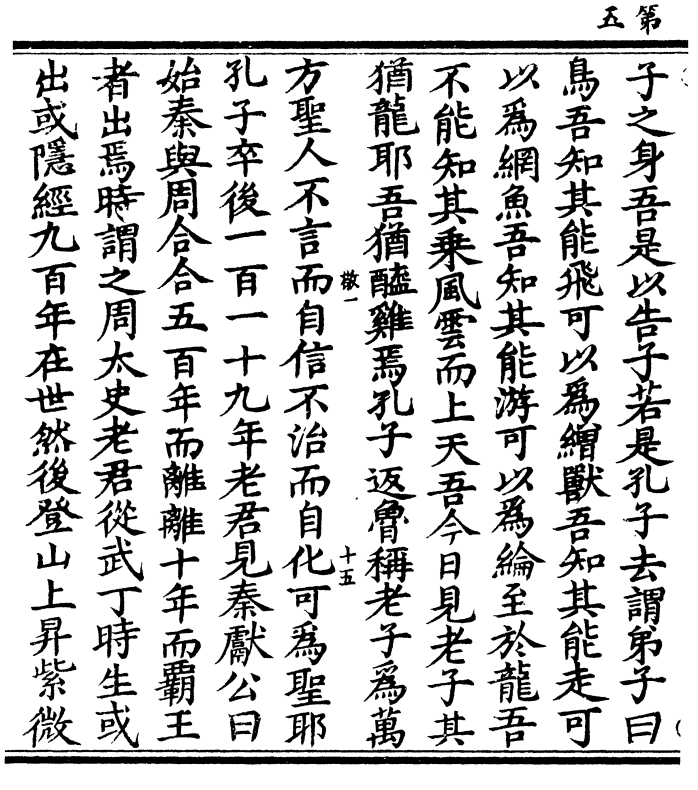 第五
子之身吾是以告子若是孔子去謂弟子曰
鳥吾知其能飛可以爲繒獸吾知其能走可
以爲網魚吾知其能游可以爲綸至於龍吾
不能知其乘風雲而上天吾今日見老子其
猶龍耶吾猶醯雞焉孔子返魯稱老子爲萬
敬一
十五
方聖人不言而自信不治而自化可爲聖耶
孔子卒後一百一十九年老君見秦獻公曰
始秦與周合合五百年而離離十年而霸王
者出焉時謂之周太史老君從武丁時生或
出或隱經九百年在世然後登山上昇紫微